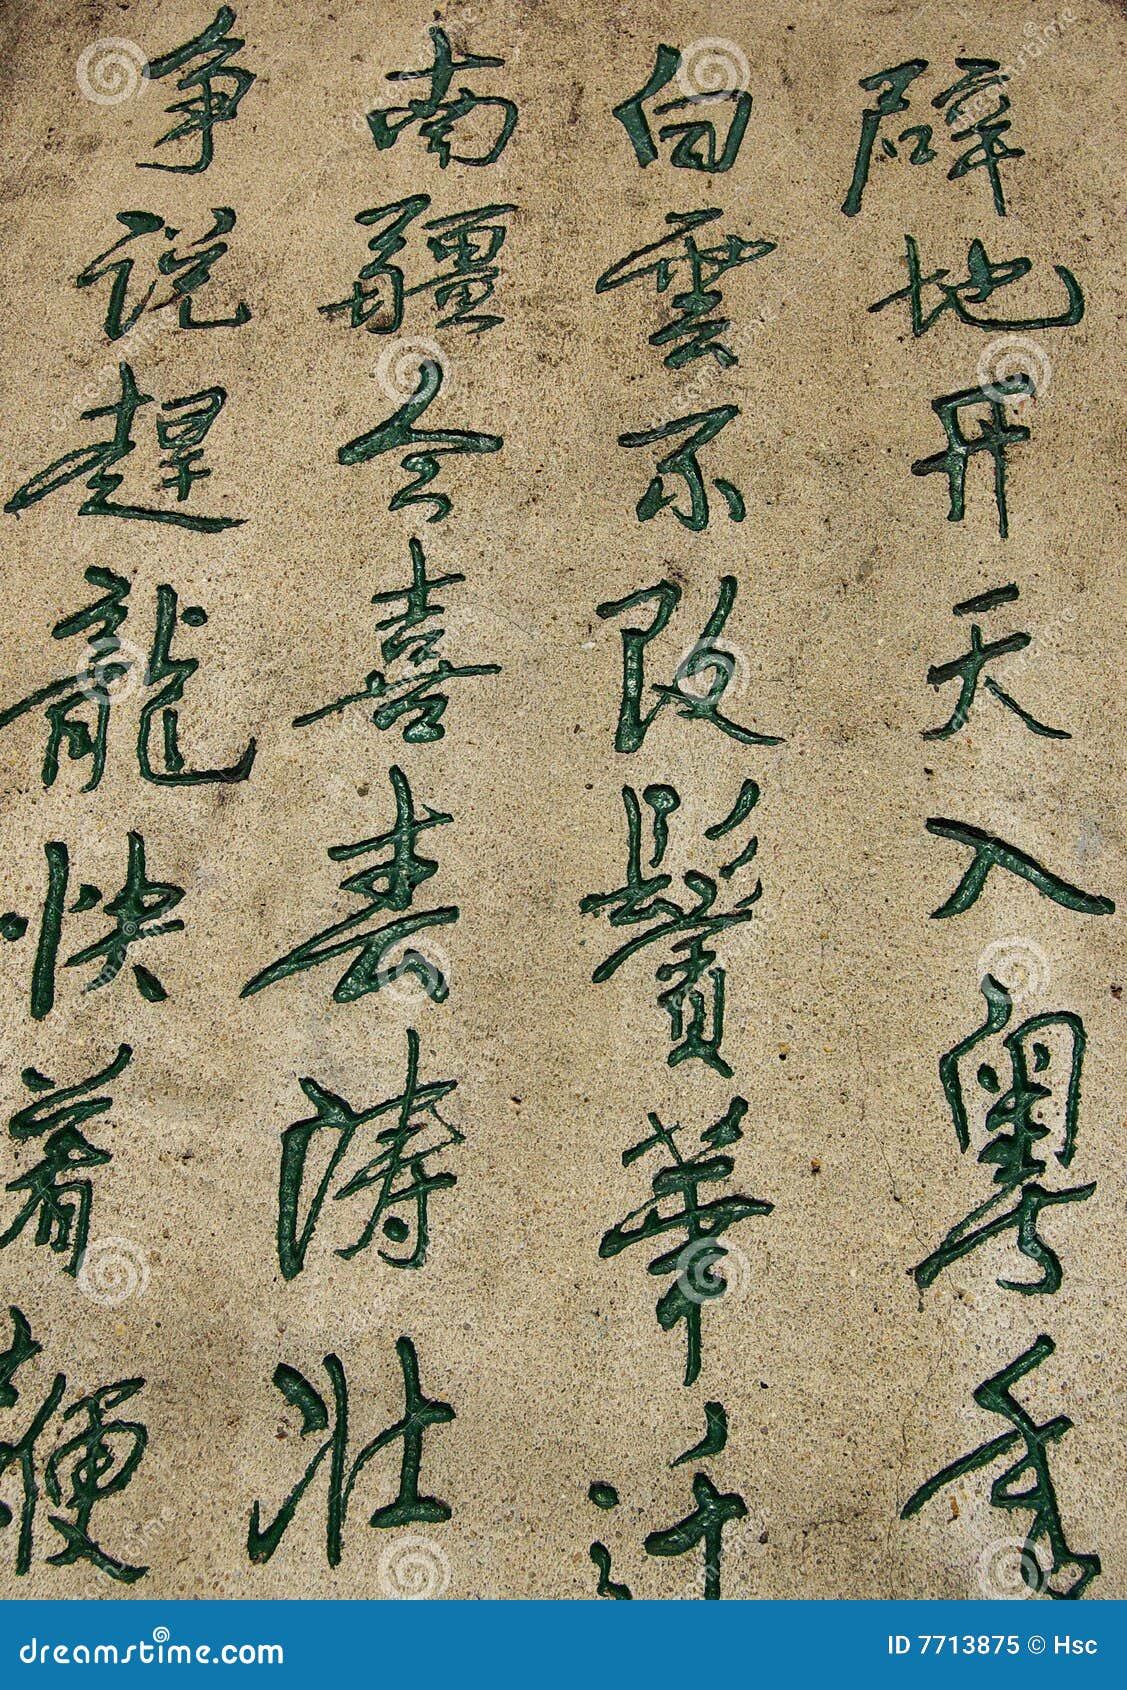 辟地开天入粤秀
白雲不改鬢華
南疆今喜春涛壮
争说趕龍快着鞭
dreamstime.com
ID 7713875 © Hsc